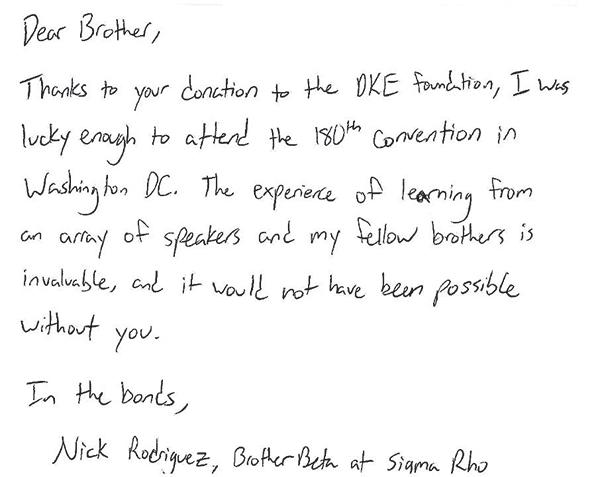 Dear Brother,
Thanks to your donation to the DKE foundation, I was
lucky enough to attend the 180th Convention in
Washington DC. The experience of learning from
an array of speakers and my fellow brothers is
invaluable, and it would not have been possible
without you.
In the bonds,
Nick Rodriguez, Brother Beta at Sigma Rho